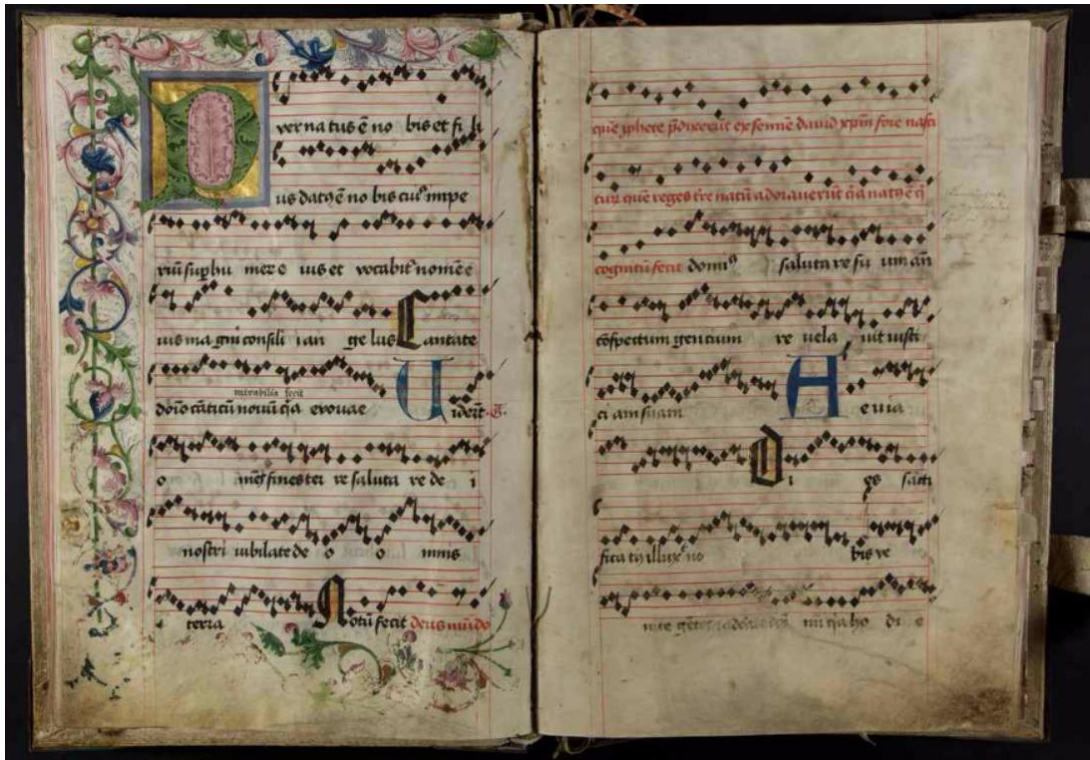 Puer na tus ē no bis et fi li
us datꝰ ē no bis cuiꝰ impe
riū suꝑ hu mer e ius et vocabit̉ nomē e
ius ma gni consili i an ge lus Cantate
mirabilia fecit
dn̄o cāticū novū q̄a evovae Viderūt. G.
o mēs fines ter re saluta re de i
nostri iubilate de o o mnis
terra Notū fecit deus mūdo
quē ꝓphete p̄dixerūt ex semīe david xp̄m fore nasci
tur quē reges t̄re natū adoraverūt q̄a natꝰ ē q̄
cognitū fecit domiꝰ saluta re su um an̄
cōspectum gencium re vela vit iusti
ci am suam A e v ia
Di es sācti
fica tꝰ illuxᵗ no bis ve
nite gētes adorate dn̄m q̄a ho di e